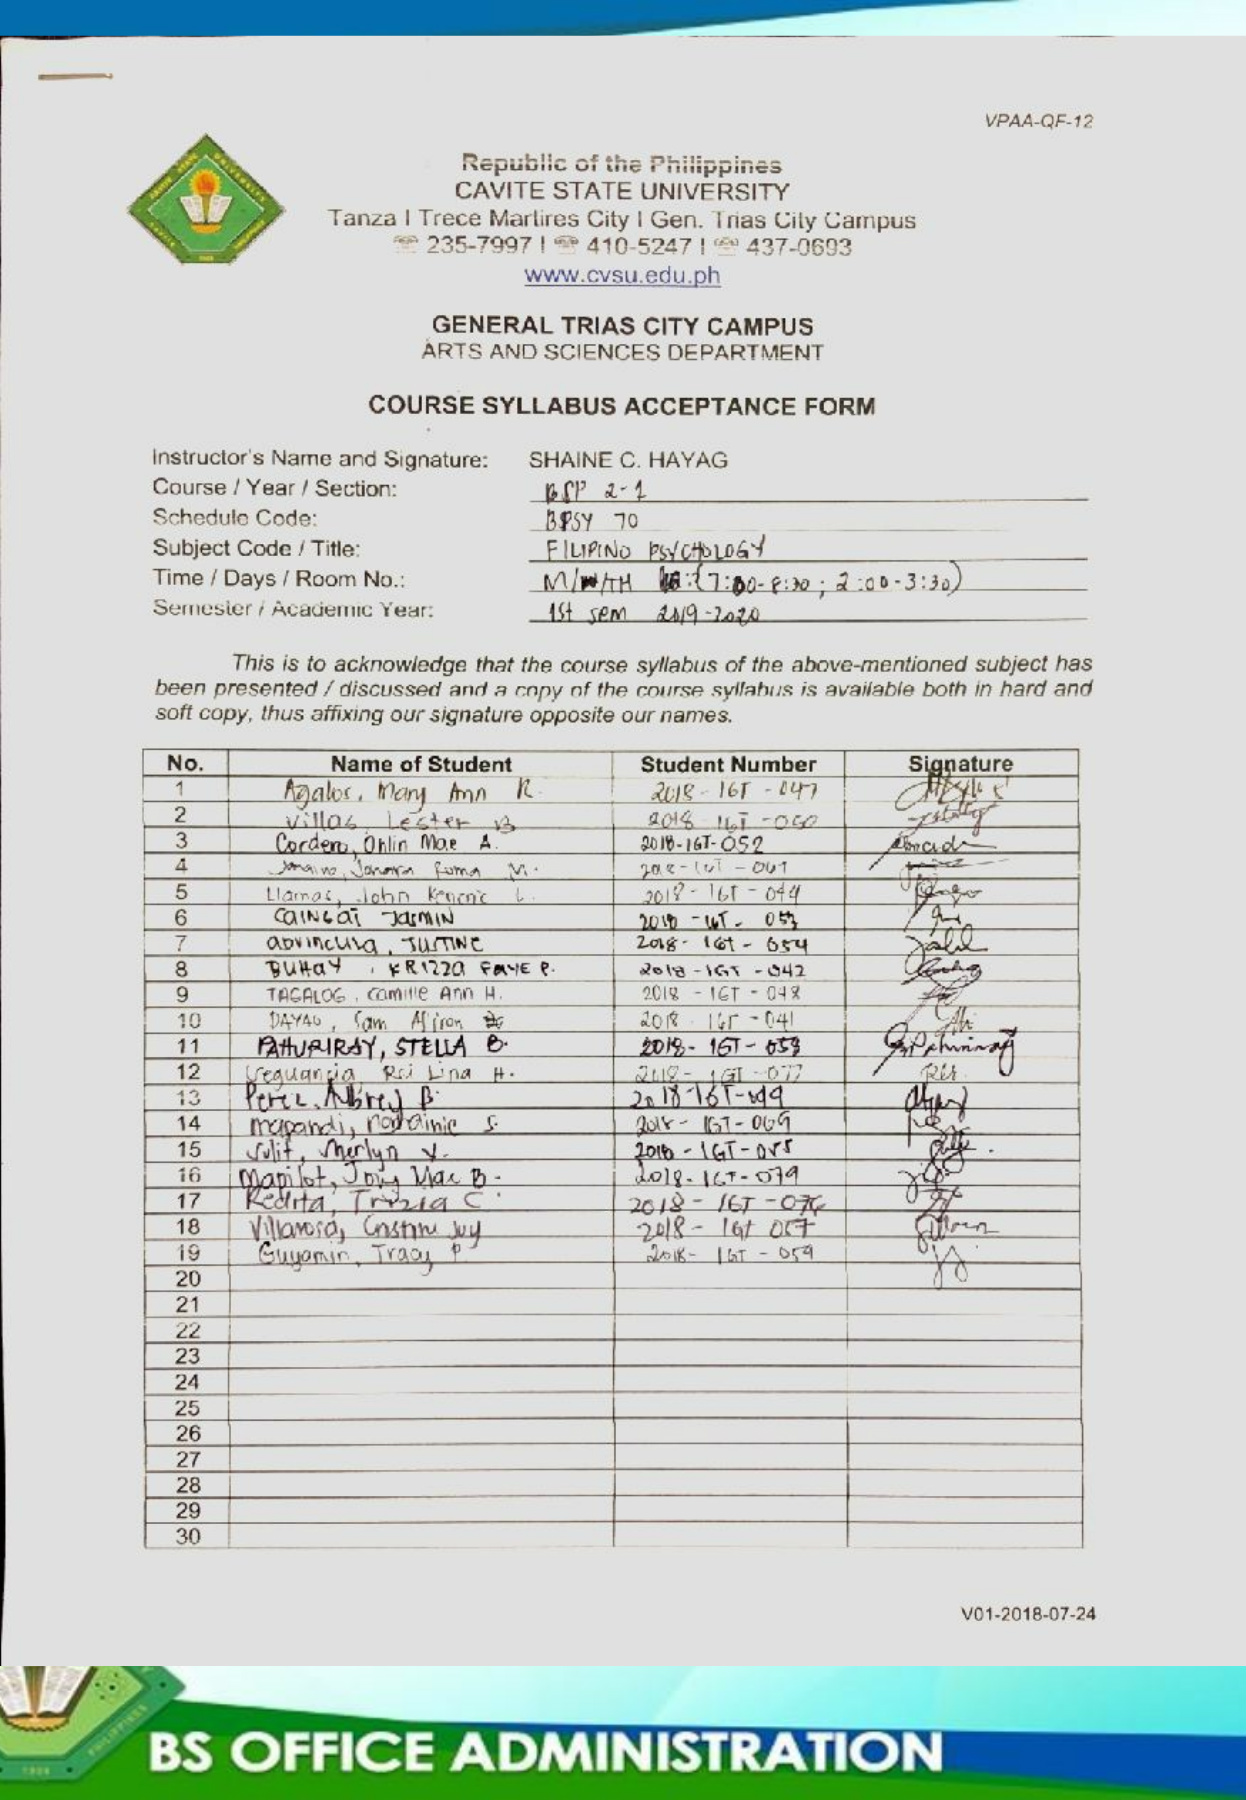 VPAA-QF-12
Republic of the Philippines
CAVITE STATE UNIVERSITY
Tanza I Trece Martires City I Gen. Trias City Campus
☏ 235-7997 I ☏ 410-5247 I ☏ 437-0693
www.cvsu.edu.ph
GENERAL TRIAS CITY CAMPUS
ARTS AND SCIENCES DEPARTMENT
COURSE SYLLABUS ACCEPTANCE FORM
Instructor's Name and Signature: SHAINE C. HAYAG
Course / Year / Section: BSP 2-1
Schedule Code: BPSY 70
Subject Code / Title: FILIPINO PSYCHOLOGY
Time / Days / Room No.: M/W/TH (7:00-8:30 ; 2:00-3:30)
Semester / Academic Year: 1st sem 2019-2020
This is to acknowledge that the course syllabus of the above-mentioned subject has
been presented / discussed and a copy of the course syllabus is available both in hard and
soft copy, thus affixing our signature opposite our names.
No. Name of Student Student Number Signature
1 Agalos, Mary Ann R. 2018-IGT-047
2 Villas, Lester B
3 Cordero, Ohlin Mae A. 2018-IGT-052
4 Roma M.
5 Llamas, John L. 2018-IGT-044
6 JASMIN 2018-IGT-
7 JUSTINE 2018-IGT-054
8 BUHAY, KRIZZA FAYE P. 2018-IGT-042
9 TAGALOG, Camille Ann H. 2018-IGT-048
10 DAYAG, Sam 2018-IGT-041
11 PATURIRAY, STELLA B.
12 Lina H. 2018-IGT-077
13 Perez, Aubrey B. 2018-IGT-049
14 Mapandi, S. 2018-IGT-069
15 Sulit, Merlyn V. 2018-IGT-055
16 Mapilot, Joey Mae B. 2018-IGT-079
17 Redita, Trizia C. 2018-IGT-076
18 Villarosa, Cristine Joy 2018-IGT
19 Guyamin, Tracy P. 2018-IGT-059
20
21
22
23
24
25
26
27
28
29
30
V01-2018-07-24
BS OFFICE ADMINISTRATION